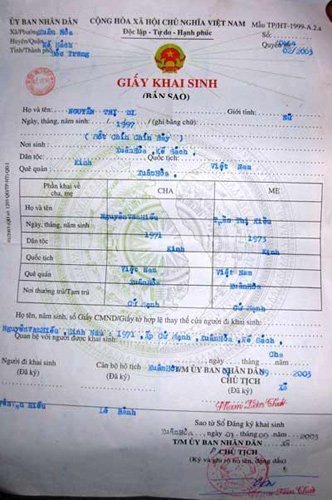 ỦY BAN NHÂN DÂN CỘNG HÒA XÃ HỘI CHỦ NGHĨA VIỆT NAM Mẫu TP/HT-1999-A.2.a
Xã/Phường Xuân Hòa Độc lập - Tự do - Hạnh phúc Số
Huyện/Quận Kế Sách Quyển số 02/2003
Tỉnh/Thành phố Sóc Trăng
GIẤY KHAI SINH
(BẢN SAO)
Họ và tên: NGUYỄN THỊ DI Giới tính: Nữ
Ngày, tháng, năm sinh: 1997 (ghi bằng chữ)
( Một Chín Chín Bảy )
Nơi sinh: Xuân Hòa, Kế Sách
Dân tộc: Kinh Quốc tịch: Việt Nam
Quê quán: Xuân Hòa
Phần khai về cha, mẹ CHA MẸ
Họ và tên Nguyễn Văn Hiếu Thị Kiều
Ngày, tháng, năm sinh 1971 1973
Dân tộc Kinh Kinh
Quốc tịch Việt Nam Việt Nam
Quê quán Xuân Hòa Xuân Hòa
Nơi thường trú/Tạm trú Cư Mạnh Cư Mạnh
Họ tên, năm sinh, số Giấy CMND/Giấy tờ hợp lệ thay thế của người đi khai sinh:
Nguyễn Văn Hiếu, Sinh Năm 1971, Ấp Cư Mạnh, Xuân Hòa, Kế Sách
Quan hệ với người được khai sinh: Cha
ngày tháng năm 2003
Người đi khai sinh Cán bộ hộ tịch T/M ỦY BAN NHÂN DÂN
(Đã ký) (Đã ký) CHỦ TỊCH
(Đã ký)
Hiếu Lê
Sao từ Sổ Đăng ký khai sinh
Xuân Hòa, ngày tháng năm 2003
T/M ỦY BAN NHÂN DÂN
CHỦ TỊCH
(Ký và ghi rõ họ tên, đóng dấu)